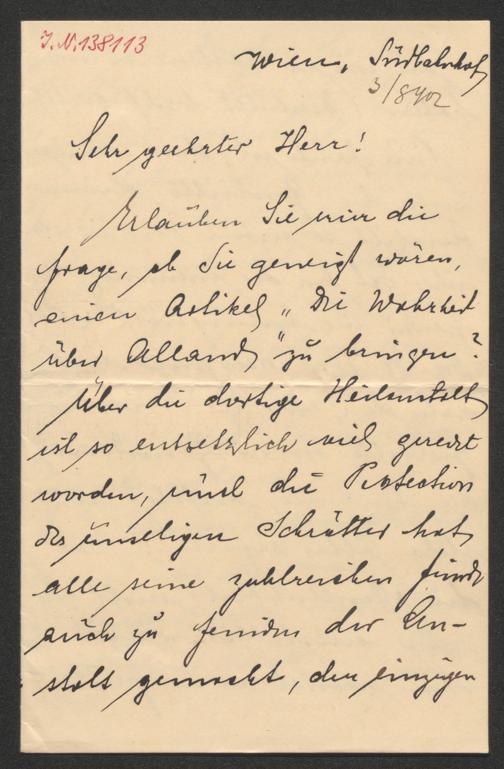 I.N. 138113
Wien, Südbahnhof
3/8 902
Sehr geehrter Herr!
Erlauben Sie mir die
Frage, ob Sie geneigt wären,
einen Artikel „Die Wahrheit
über Alland“ zu bringen?
Über die dortige Heilanstalt
ist so entsetzlich viel geredet
worden, und die Protection
des unseligen Schrötter hat
alle seine zahlreichen Feinde
auch zu Feinden der An-
stalt gemacht, den einzigen